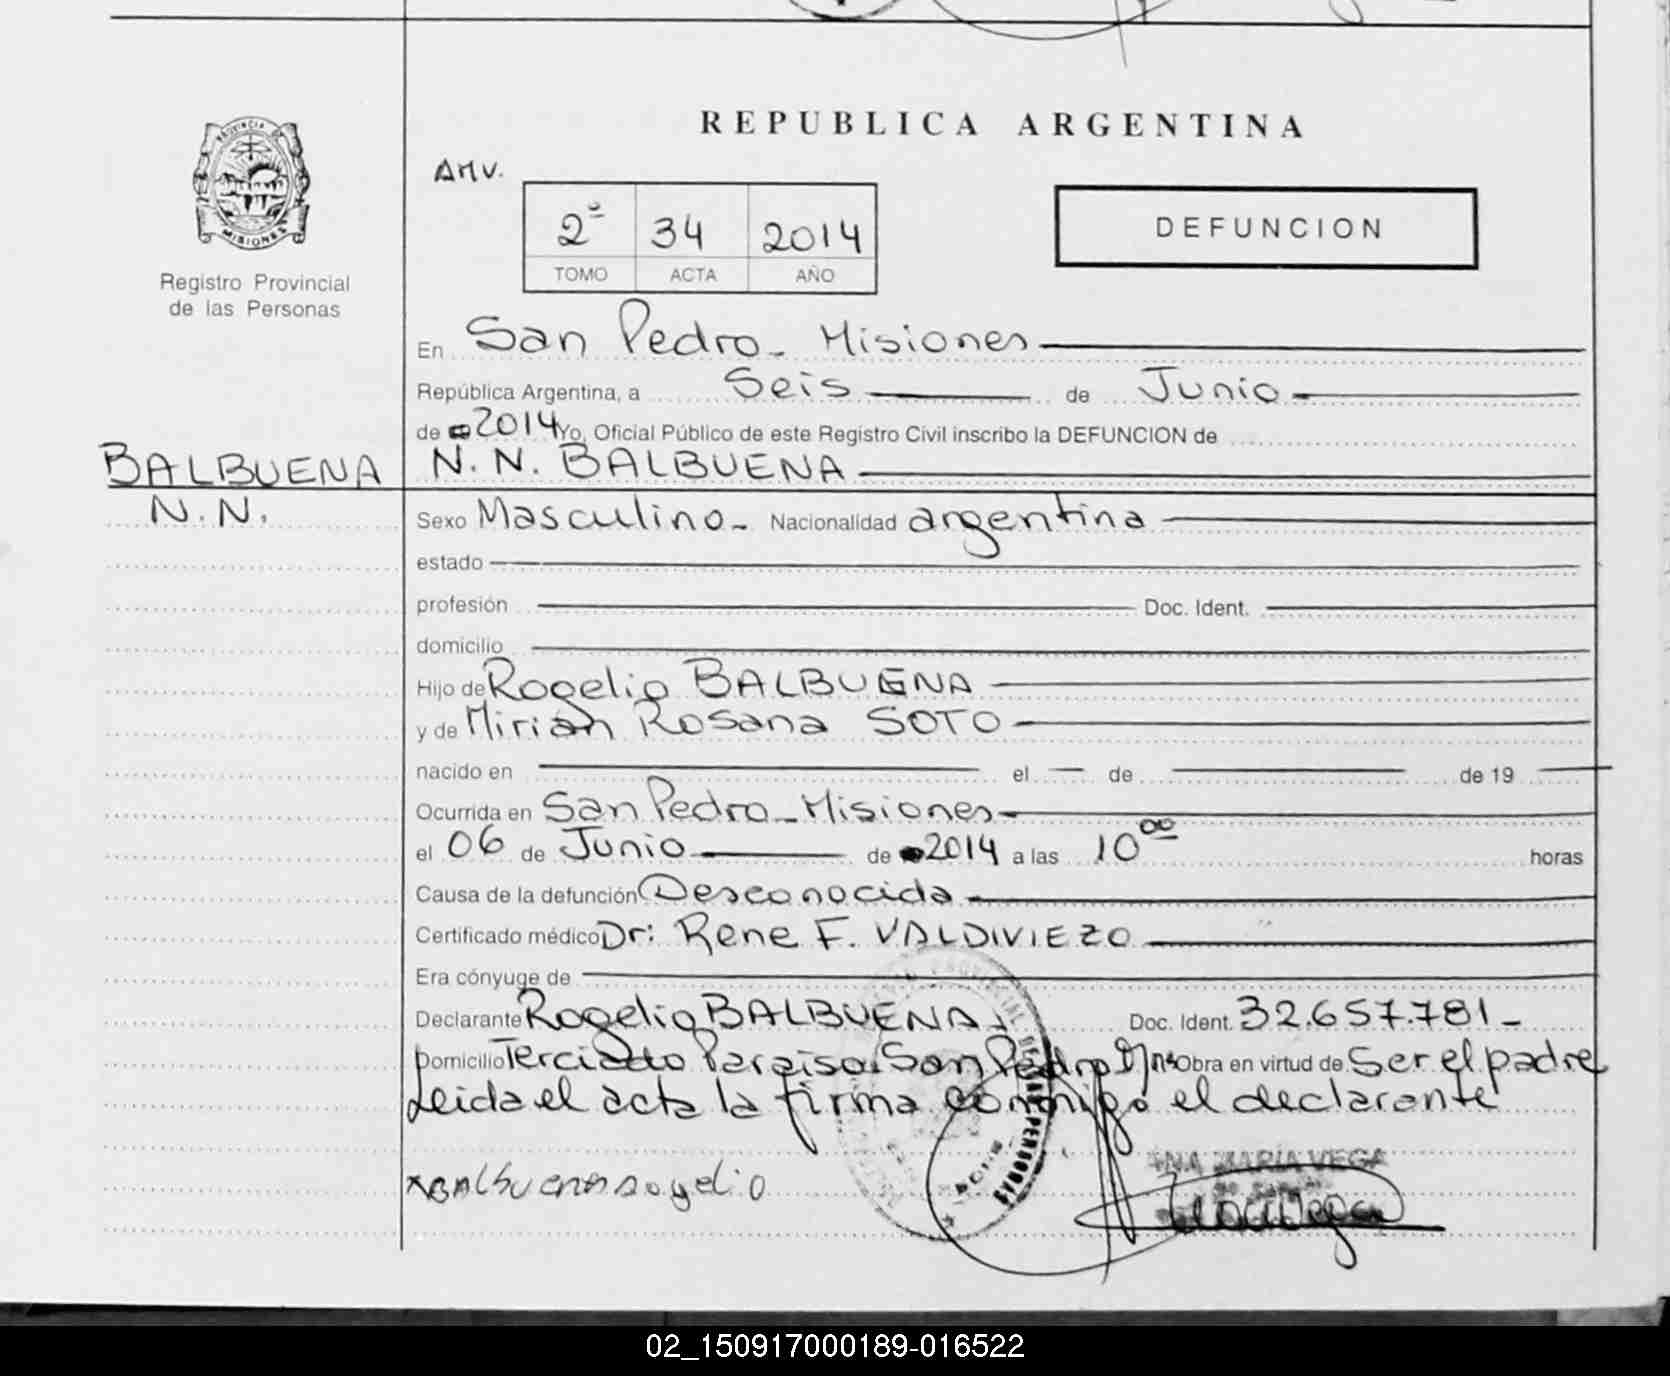 REPUBLICA ARGENTINA
PROVINCIA DE
MISIONES
Registro Provincial
de las Personas
AMV.
2º 34 2014
TOMO ACTA AÑO
DEFUNCION
En San Pedro - Misiones
República Argentina, a Seis de Junio
de 2014 Yo, Oficial Público de este Registro Civil inscribo la DEFUNCION de
BALBUENA N. N. BALBUENA
N. N.
Sexo Masculino - Nacionalidad argentina
estado
profesión Doc. Ident.
domicilio
Hijo de Rogelio BALBUENA
y de Mirian Rosana SOTO
nacido en el de de 19
Ocurrida en San Pedro - Misiones
el 06 de Junio de 2014 a las 10 00 horas
Causa de la defunción Desconocida
Certificado médico Dr: Rene F. VALDIVIEZO
Era cónyuge de
Declarante Rogelio BALBUENA - Doc. Ident. 32.657.781 -
Domicilio Terciado Paraiso San Pedro Mnes Obra en virtud de Ser el padre
Leida el acta la firma conmigo el declarante
x Balbuena rogelio
ANA MARIA VEGA
02_150917000189-016522